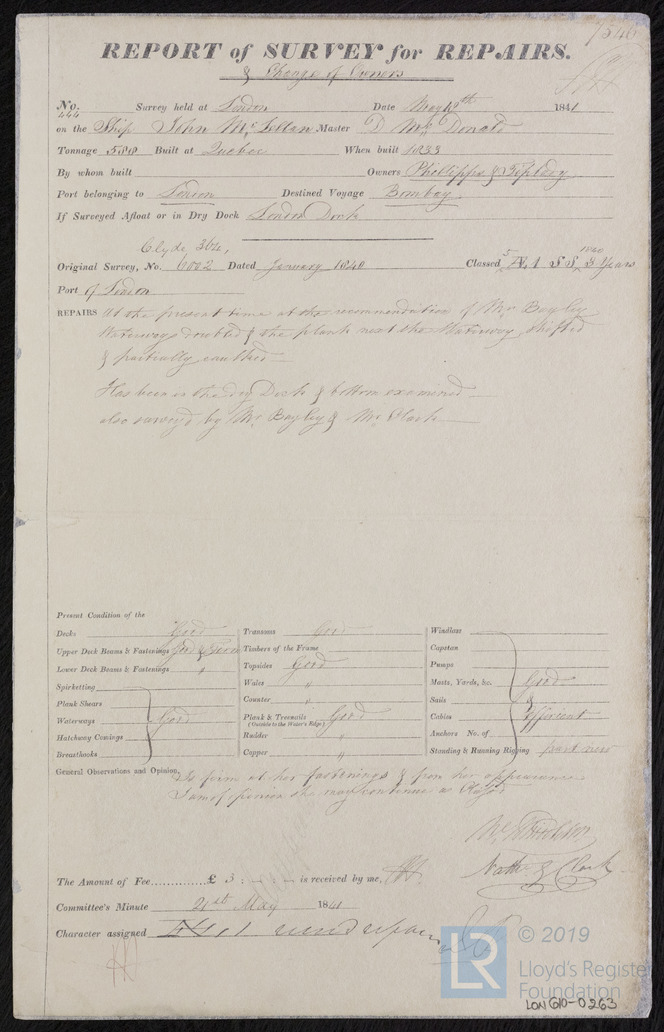 1546
REPORT of SURVEY for REPAIRS.
& Change of Owners
No. 444 Survey held at London Date May 18th 1841
on the Ship John McLellan Master D McDonald
Tonnage 580 Built at Quebec When built 1833
By whom built Owners Phillipps & Tiplady
Port belonging to London Destined Voyage Bombay
If Surveyed Afloat or in Dry Dock London Dock
Clyde 364,
Original Survey, No. 6002 Dated January 1840 Classed Æ1
Port of London
REPAIRS At the present time at the recommendation of Mr Bayley
Waterways doubled & the plank next the Waterway shifted
& partially caulked
Has been in the dry Dock & bottom examined
also survey'd by Mr Bayley & Mr Clark
Present Condition of the
Decks Good
Upper Deck Beams & Fastenings Good & Good
Lower Deck Beams & Fastenings "
Spirketting
Plank Shears
Waterways Good
Hatchway Comings
Breasthooks
Transoms Good
Timbers of the Frame
Topsides Good
Wales "
Counter "
Plank & Treenails Good
(Outside to the Water's Edge)
Rudder "
Copper "
Windlass
Capstan
Pumps
Masts, Yards, &c. Good
Sails &
Cables Efficient
Anchors No. of
Standing & Running Rigging part new
General Observations and Opinion, Is firm at her fastenings & from her appearance
I am of opinion she may continue as Class'd
Nath. Clark
The Amount of Fee............£ 3 : — : — is received by me,
Committee's Minute 21st May 1841
Character assigned
LR
© 2019
Lloyd's Register
Foundation
LON 610-0263